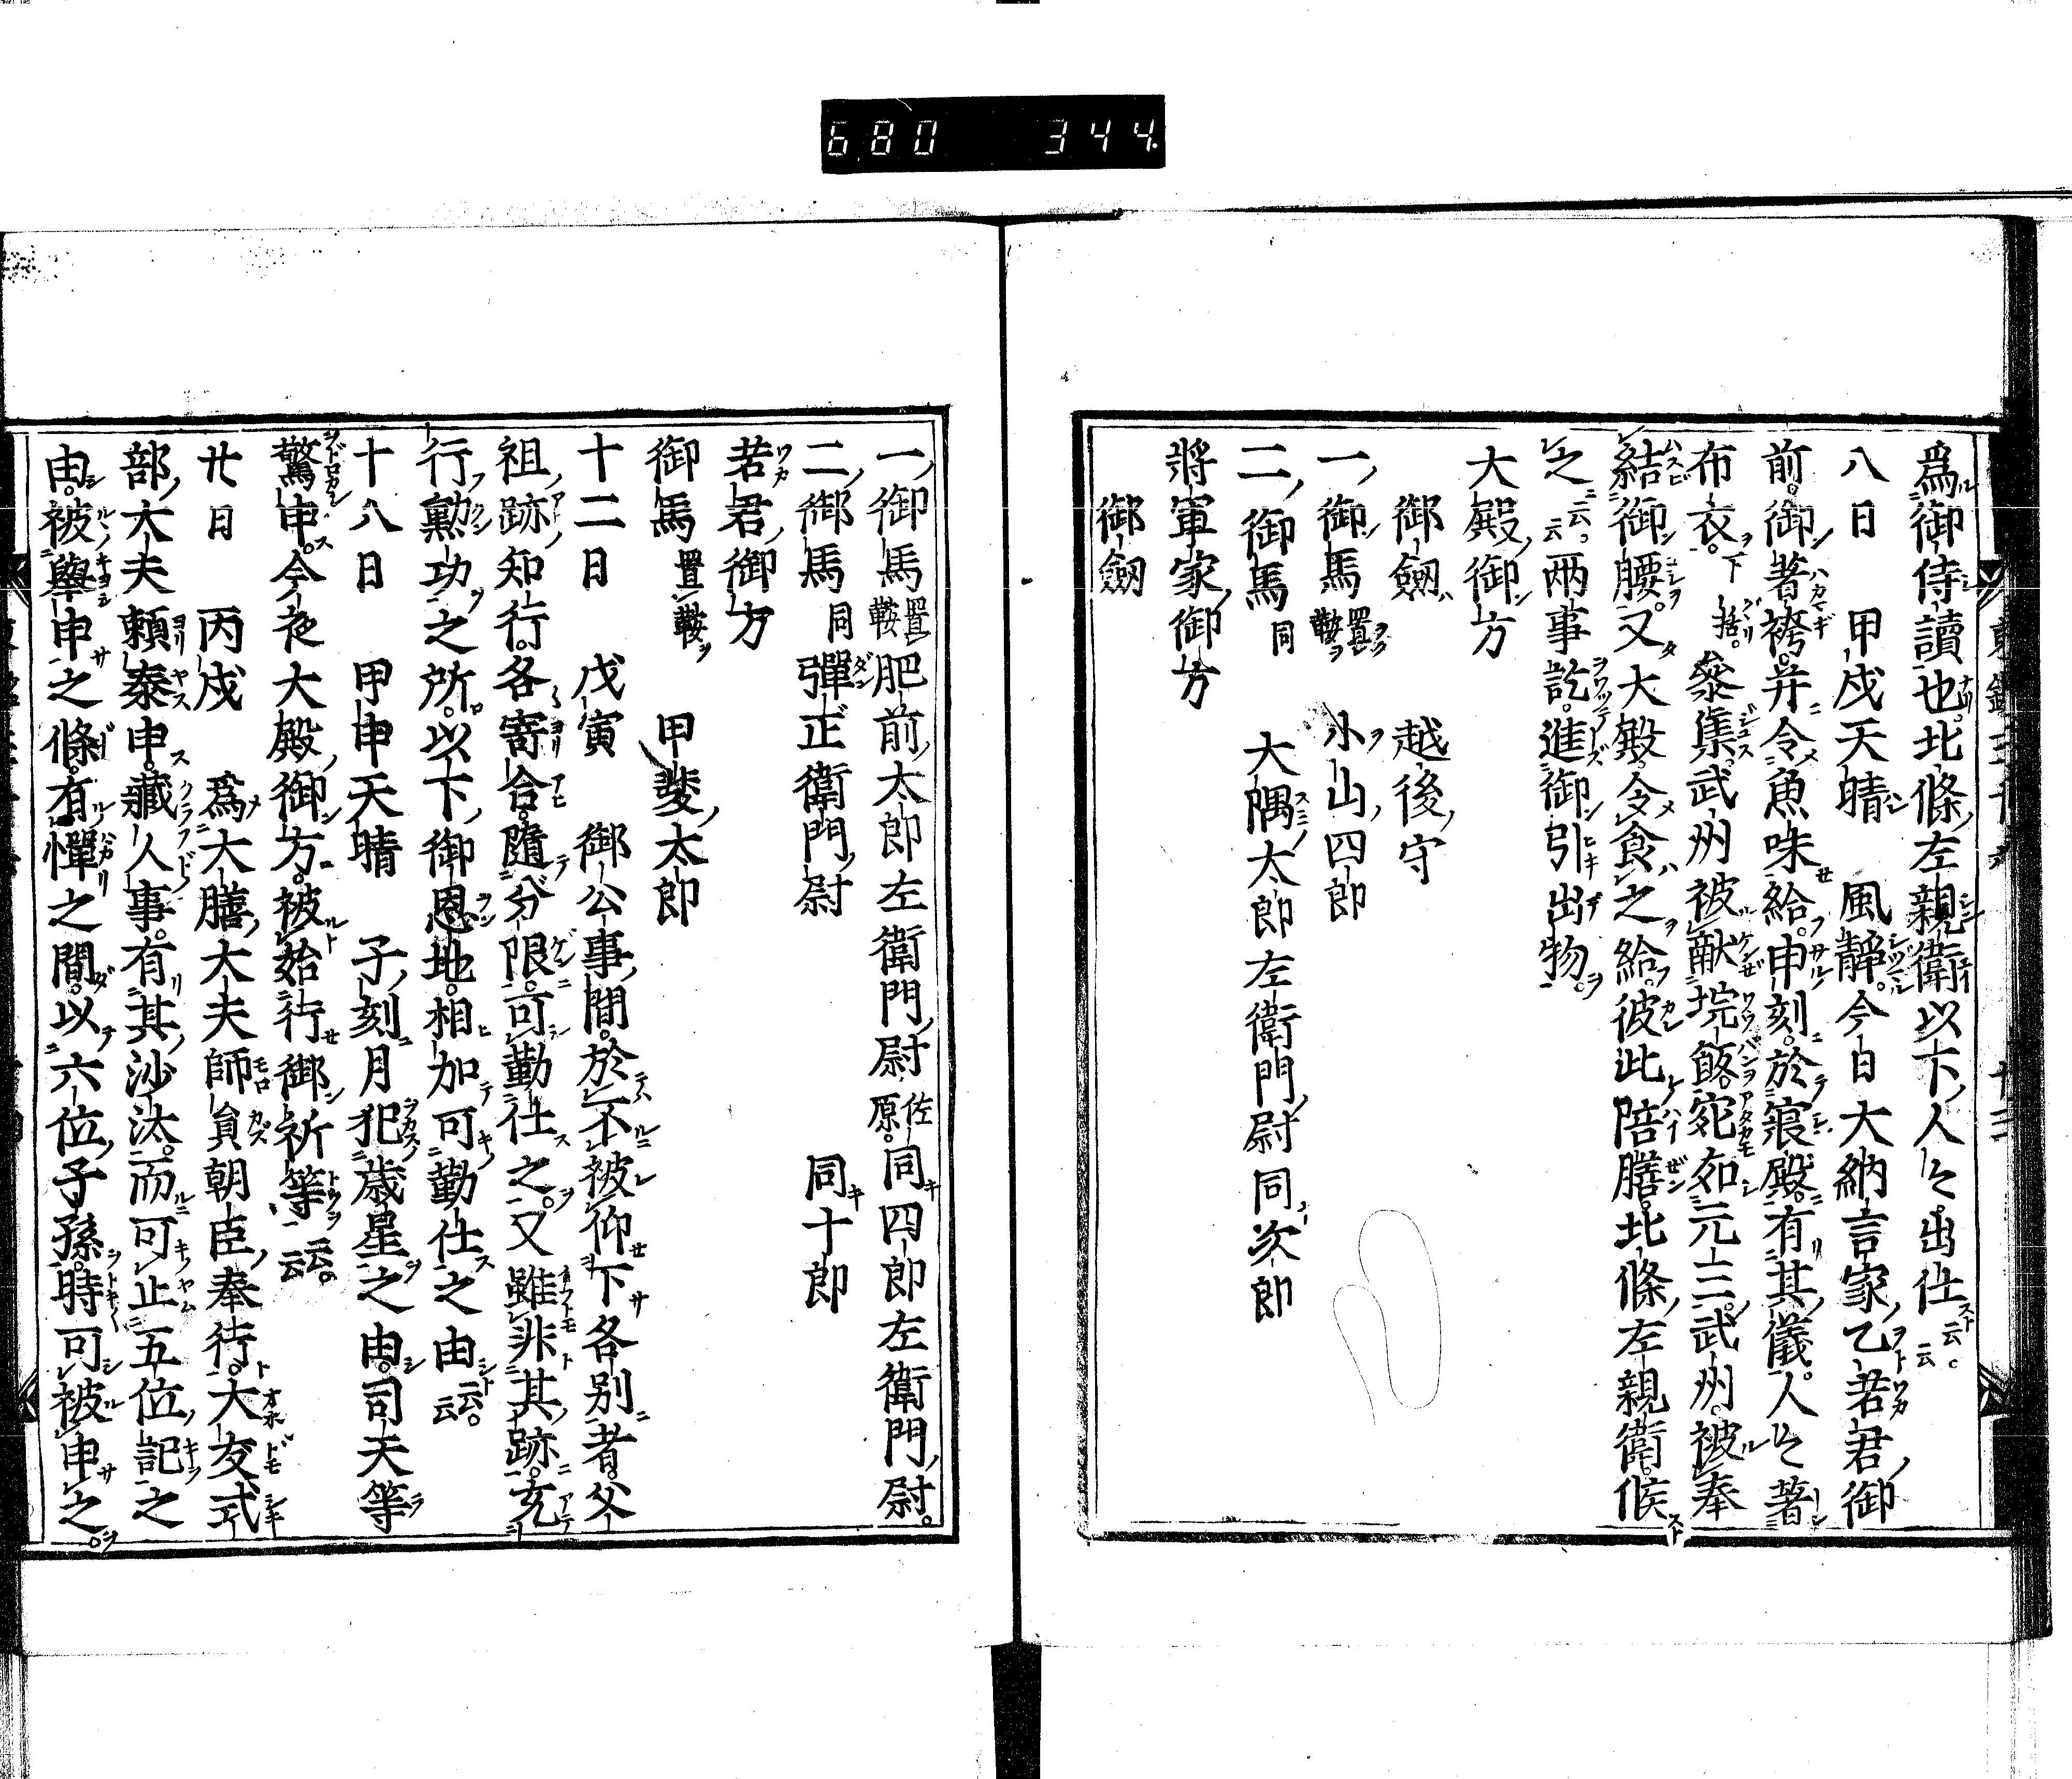 680 344
爲御侍讀也。北條左親衛以下人々。出仕云云。
八日 甲戌 天晴 風靜。今日大納言家乙若君御
前。御著袴。并令魚味給。申刻。於寢殿。有其儀。人々著
布衣。下括。參集。武州被獻垸飯。宛如元三。武州。被奉
結御腰。又大殿。令食之給。彼此陪膳。北條左親衛。候
之云云。兩事訖。進御引出物。
大殿御方
御劔 越後守
一御馬置鞍 小山四郎
二御馬同 大隅太郎左衛門尉 同次郎
將軍家御方
御劔
一御馬置鞍 肥前太郎左衛門尉 佐原。同四郎左衛門尉。
二御馬同 彈正衛門尉 同十郎
若君御方
御馬置鞍 甲斐太郎
十二日 戊寅 御公事間。於不被仰下各別者。父
祖跡知行。各寄合。隨分限。可勤仕之。又雖非其跡。充
行勲功之所。以下御恩地。相加可勤仕之由云云。
十八日 甲申 天晴 子刻月犯歳星之由。司天等
驚申。今夜大殿御方。被始行御祈等云云。
廿日 丙戌 爲大膳大夫師員朝臣奉行。大友式
部大夫頼泰申。藏人事。有其沙汰。而可止五位記之
由。被擧申之條。有憚之間。以六位子孫。時可被申之。